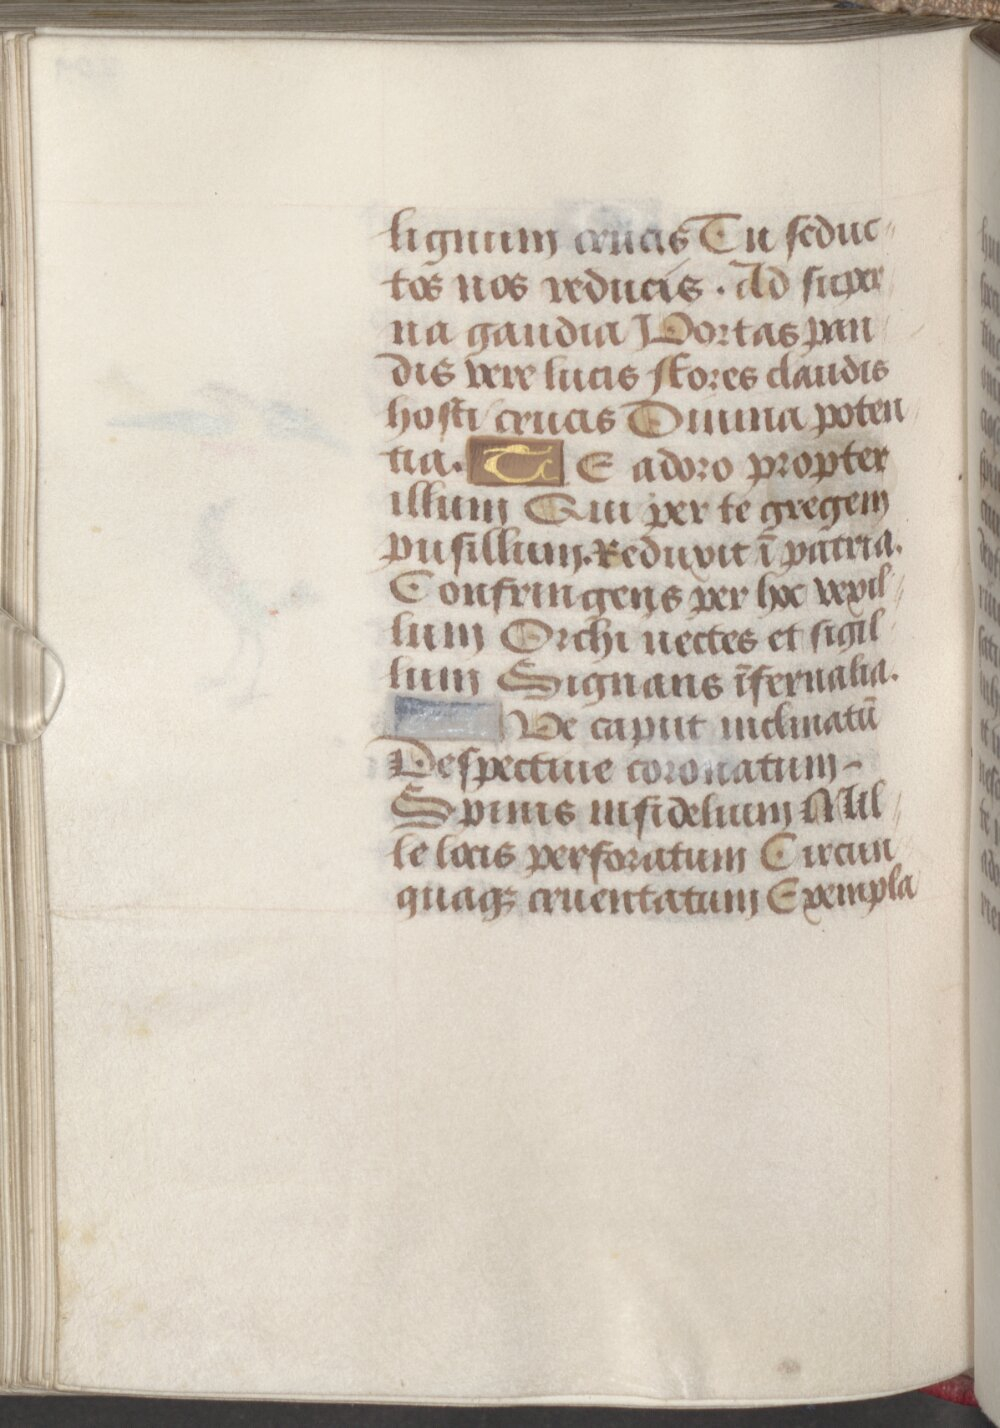 lignum crucis Tu seduc-
tos nos reducis. Ad super
na gaudia Portas pan
dis vere lucis Fores claudis
hosti crucis Diuina poten
tia. TE adoro propter
illum Qui per te gregem
pusillum. Reduxit ī patria.
Confringens per hoc vexil-
lum Orchi uectes et sigil-
lum Signans īfernalia.
Ve caput inclinatū
Despectiue coronatum -
Spinis infidelium Mil-
le locis perforatum Circun-
quaqȝ cruentatum Exempla